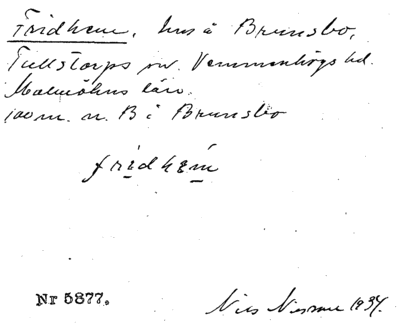 Fridhem, hus å Brunsbo,
Tullstorps sn. Vemmenhögs hd.
Malmöhus län.
100 m. n. B i Brunsbo
fridhem
Nr 5877. Nils 1934.